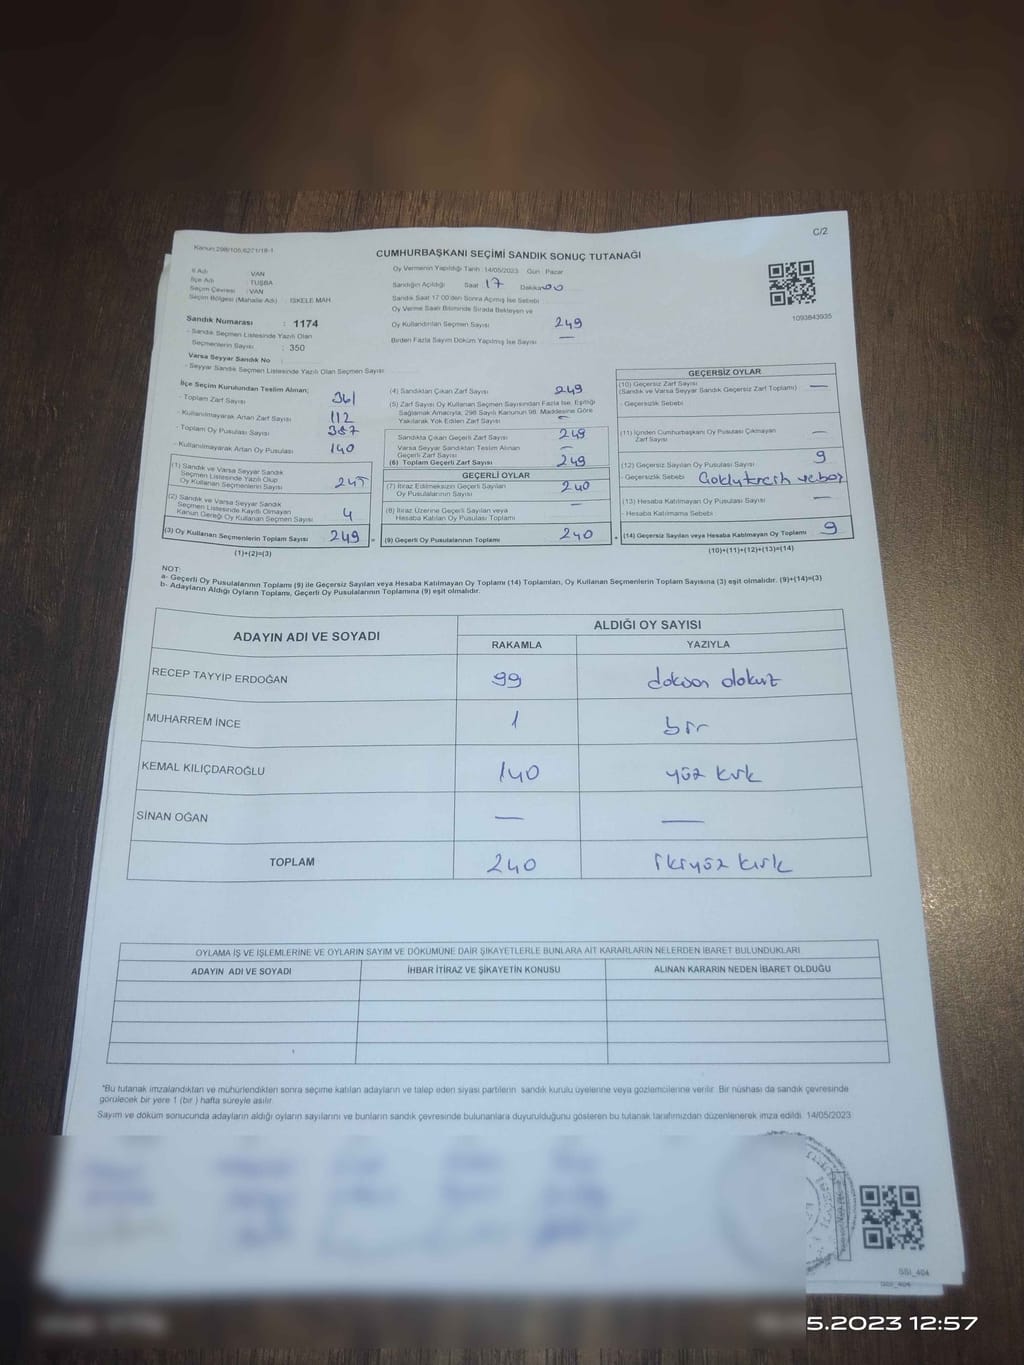 C/2
Kanun:298/105,6271/18-1
CUMHURBAŞKANI SEÇİMİ SANDIK SONUÇ TUTANAĞI
İl Adı : VAN
İlçe Adı : TUŞBA
Seçim Çevresi : VAN
Seçim Bölgesi (Mahalle Adı) : İSKELE MAH.
Sandık Numarası : 1174
- Sandık Seçmen Listesinde Yazılı Olan
Seçmenlerin Sayısı : 350
Varsa Seyyar Sandık No :
- Seyyar Sandık Seçmen Listesinde Yazılı Olan Seçmen Sayısı :
Oy Vermenin Yapıldığı Tarih : 14/05/2023 Gün : Pazar
Sandığın Açıldığı Saat : 17 Dakika: 00
Sandık Saat 17:00'den Sonra Açılmış İse Sebebi :
Oy Verme Saati Bitiminde Sırada Bekleyen ve
Oy Kullandırılan Seçmen Sayısı : 249
Birden Fazla Sayım Döküm Yapılmış İse Sayısı : —
1093843935
İlçe Seçim Kurulundan Teslim Alınan;
- Toplam Zarf Sayısı : 361
- Kullanılmayarak Artan Zarf Sayısı : 112
- Toplam Oy Pusulası Sayısı : 387
- Kullanılmayarak Artan Oy Pusulası : 140
(1) Sandık ve Varsa Seyyar Sandık
Seçmen Listesinde Yazılı Olup
Oy Kullanan Seçmenlerin Sayısı : 245
(2) Sandık ve Varsa Seyyar Sandık
Seçmen Listesinde Kayıtlı Olmayan
Kanun Gereği Oy Kullanan Seçmen Sayısı : 4
(3) Oy Kullanan Seçmenlerin Toplam Sayısı : 249
(1)+(2)=(3)
(4) Sandıktan Çıkan Zarf Sayısı : 249
(5) Zarf Sayısı Oy Kullanan Seçmen Sayısından Fazla İse, Eşitliği
Sağlamak Amacıyla, 298 Sayılı Kanunun 98. Maddesine Göre
Yakılarak Yok Edilen Zarf Sayısı : —
Sandıkta Çıkan Geçerli Zarf Sayısı : 249
Varsa Seyyar Sandıktan Teslim Alınan
Geçerli Zarf Sayısı : —
(6) Toplam Geçerli Zarf Sayısı : 249
GEÇERLİ OYLAR
(7) İtiraz Edilmeksizin Geçerli Sayılan
Oy Pusulalarının Sayısı : 240
(8) İtiraz Üzerine Geçerli Sayılan veya
Hesaba Katılan Oy Pusulası Toplamı : —
(9) Geçerli Oy Pusulalarının Toplamı : 240
GEÇERSİZ OYLAR
(10) Geçersiz Zarf Sayısı
(Sandık ve Varsa Seyyar Sandık Geçersiz Zarf Toplamı) : —
- Geçersizlik Sebebi :
(11) İçinden Cumhurbaşkanı Oy Pusulası Çıkmayan
Zarf Sayısı : —
(12) Geçersiz Sayılan Oy Pusulası Sayısı : 9
- Geçersizlik Sebebi : Çoklu tercih ve boş
(13) Hesaba Katılmayan Oy Pusulası Sayısı : —
- Hesaba Katılmama Sebebi :
(14) Geçersiz Sayılan veya Hesaba Katılmayan Oy Toplamı : 9
(10)+(11)+(12)+(13)=(14)
NOT:
a- Geçerli Oy Pusulalarının Toplamı (9) ile Geçersiz Sayılan veya Hesaba Katılmayan Oy Toplamı (14) Toplamları, Oy Kullanan Seçmenlerin Toplam Sayısına (3) eşit olmalıdır. (9)+(14)=(3)
b- Adayların Aldığı Oyların Toplamı, Geçerli Oy Pusulalarının Toplamına (9) eşit olmalıdır.
ADAYIN ADI VE SOYADI
ALDIĞI OY SAYISI
RAKAMLA YAZIYLA
RECEP TAYYİP ERDOĞAN 99 doksan dokuz
MUHARREM İNCE 1 bir
KEMAL KILIÇDAROĞLU 140 yüz kırk
SİNAN OĞAN — —
TOPLAM 240 ikiyüz kırk
OYLAMA İŞ VE İŞLEMLERİNE VE OYLARIN SAYIM VE DÖKÜMÜNE DAİR ŞİKAYETLERLE BUNLARA AİT KARARLARIN NELERDEN İBARET BULUNDUKLARI
ADAYIN ADI VE SOYADI İHBAR İTİRAZ VE ŞİKAYETİN KONUSU ALINAN KARARIN NEDEN İBARET OLDUĞU
*Bu tutanak imzalandıktan ve mühürlendikten sonra seçime katılan adayların ve talep eden siyasi partilerin sandık kurulu üyelerine veya gözlemcilerine verilir. Bir nüshası da sandık çevresinde
görülecek bir yere 1 (bir ) hafta süreyle asılır.
Sayım ve döküm sonucunda adayların aldığı oyların sayılarını ve bunların sandık çevresinde bulunanlara duyurulduğunu gösteren bu tutanak tarafımızdan düzenlenerek imza edildi. 14/05/2023
GSI_404
GSI_404
5.2023 12:57